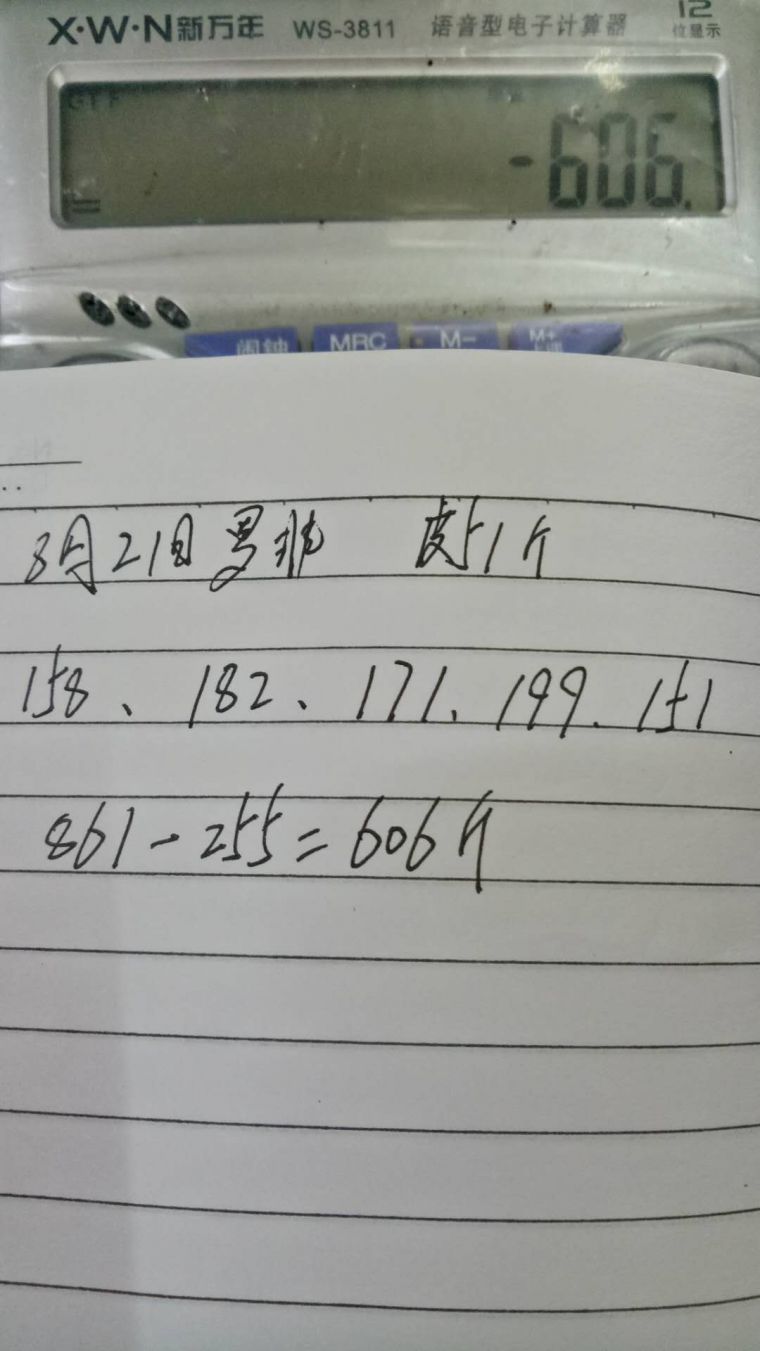 X·W·N新万年 WS-3811 语音型电子计算器 12位显示
OFF
-606.
=
闹钟 MRC M- M+
8月21日 罗非 皮51斤
158、182、171、199、151
861-255=606斤